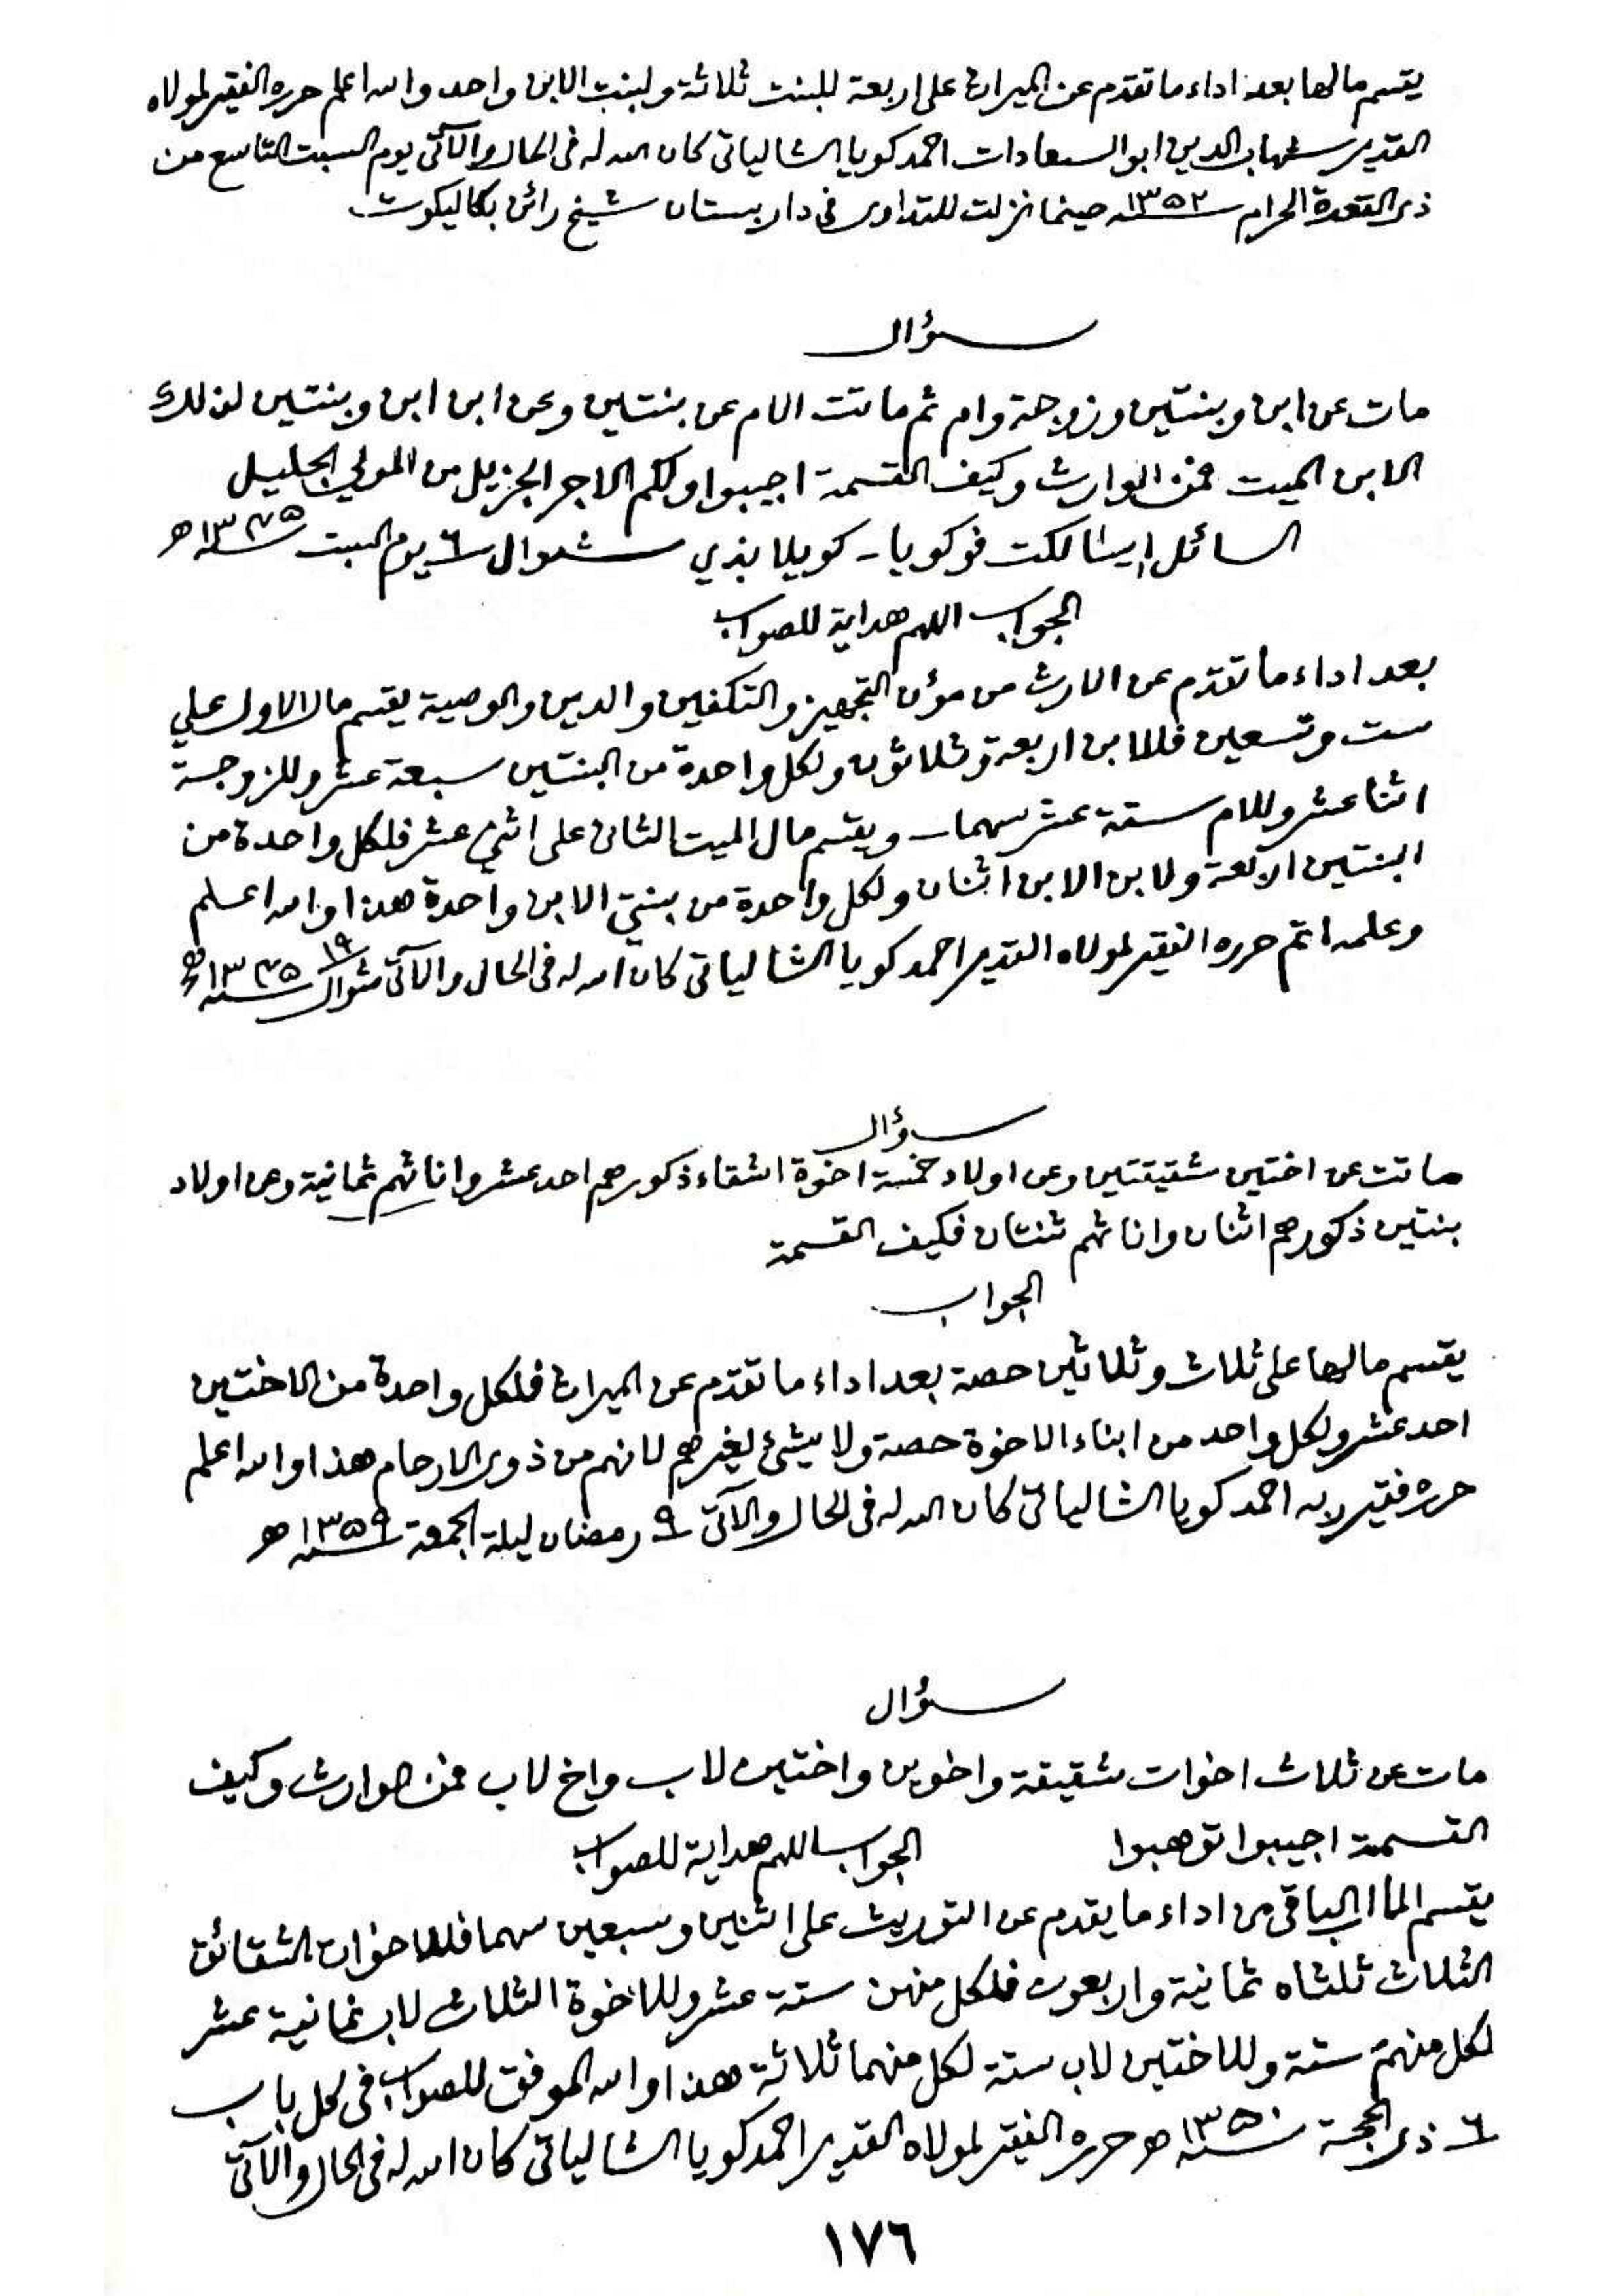 يقسم مالها بعد اداء ما تقدم عن الميراث على اربعة للبنت ثلاثة ولبنت الابن واحد والله اعلم حرره الفقير لمولاه
القدير شهاب الدين ابو السعادات احمد كويا الشالياتي كان الله له في الحال والآتي يوم السبت التاسع من
ذي القعدة الحرام سنة ١٣٥٢ حينما نزلت للتداوي في داربستان شيخ رائن بكاليكوت
سؤال
مات عن ابن وبنتين وزوجة وام ثم ماتت الام عن بنتين وعن ابن ابن وبنتين لذلك
الابن الميت فمن الوارث وكيف القسمة اجيبوا ولكم الاجر الجزيل من المولي الجليل
السائل ايشالكت فوكويا - كويلابذي شوال ٦ يوم السبت سنة ١٣٧٥ ه
الجواب اللهم هداية للصواب
بعد اداء ما تقدم عن الارث من مؤن التجهيز والتكفين والدين والوصية يقسم مال الاول علي
ست وتسعين فللابن اربعة وثلاثون ولكل واحدة من البنتين سبعة عشر وللزوجة
اثنا عشر وللام ستة عشر سهما ويقسم مال الميت الثاني على اثني عشر فلكل واحدة من
البنتين اربعة ولابن الابن اثنان ولكل واحدة من بنتي الابن واحدة هذا والله اعلم
وعلمه اتم حرره الفقير لمولاه القدير احمد كويا الشالياتي كان الله له في الحال والآتي ١٩ شوال سنة ١٣٧٥ ه
سؤال
ماتت عن اختين شقيقتين وعن اولاد خمسة اخوة اشقاء ذكورهم احد عشر واناثهم ثمانية وعن اولاد
بنتين ذكورهم اثنان واناثهم ثنتان فكيف القسمة
الجواب
يقسم مالها على ثلاث وثلاثين حصة بعد اداء ما تقدم عن الميراث فلكل واحدة من الاختين
احد عشر ولكل واحد من ابناء الاخوة حصة ولا شيئ لغيرهم لانهم من ذوي الارحام هذا والله اعلم
حرره فقير ربه احمد كويا الشالياتي كان الله له في الحال والآتي ٩ رمضان ليلة الجمعة سنة ١٣٥٩ ه
سؤال
مات عن ثلاث اخوات شقيقة واخوين واختين لاب واخ لاب فمن الوارث وكيف
القسمة اجيبوا توهبوا الجواب اللهم هداية للصواب
يقسم المال الباقي من اداء ما يقدم عن التوريث على اثنين وسبعين سهما فللاخوات الشقائق
الثلاث ثلثاه ثمانية واربعون فلكل منهن ستة عشر وللاخوة الثلاث لاب ثمانية عشر
لكل منهم ستة وللاختين لاب ستة لكل منهما ثلاثة هذا والله الموفق للصواب في كل باب
٦ ذي الحجة سنة ١٣٥٠ ه حرره الفقير لمولاه القدير احمد كويا الشالياتي كان الله له في الحال والآتي
١٧٦